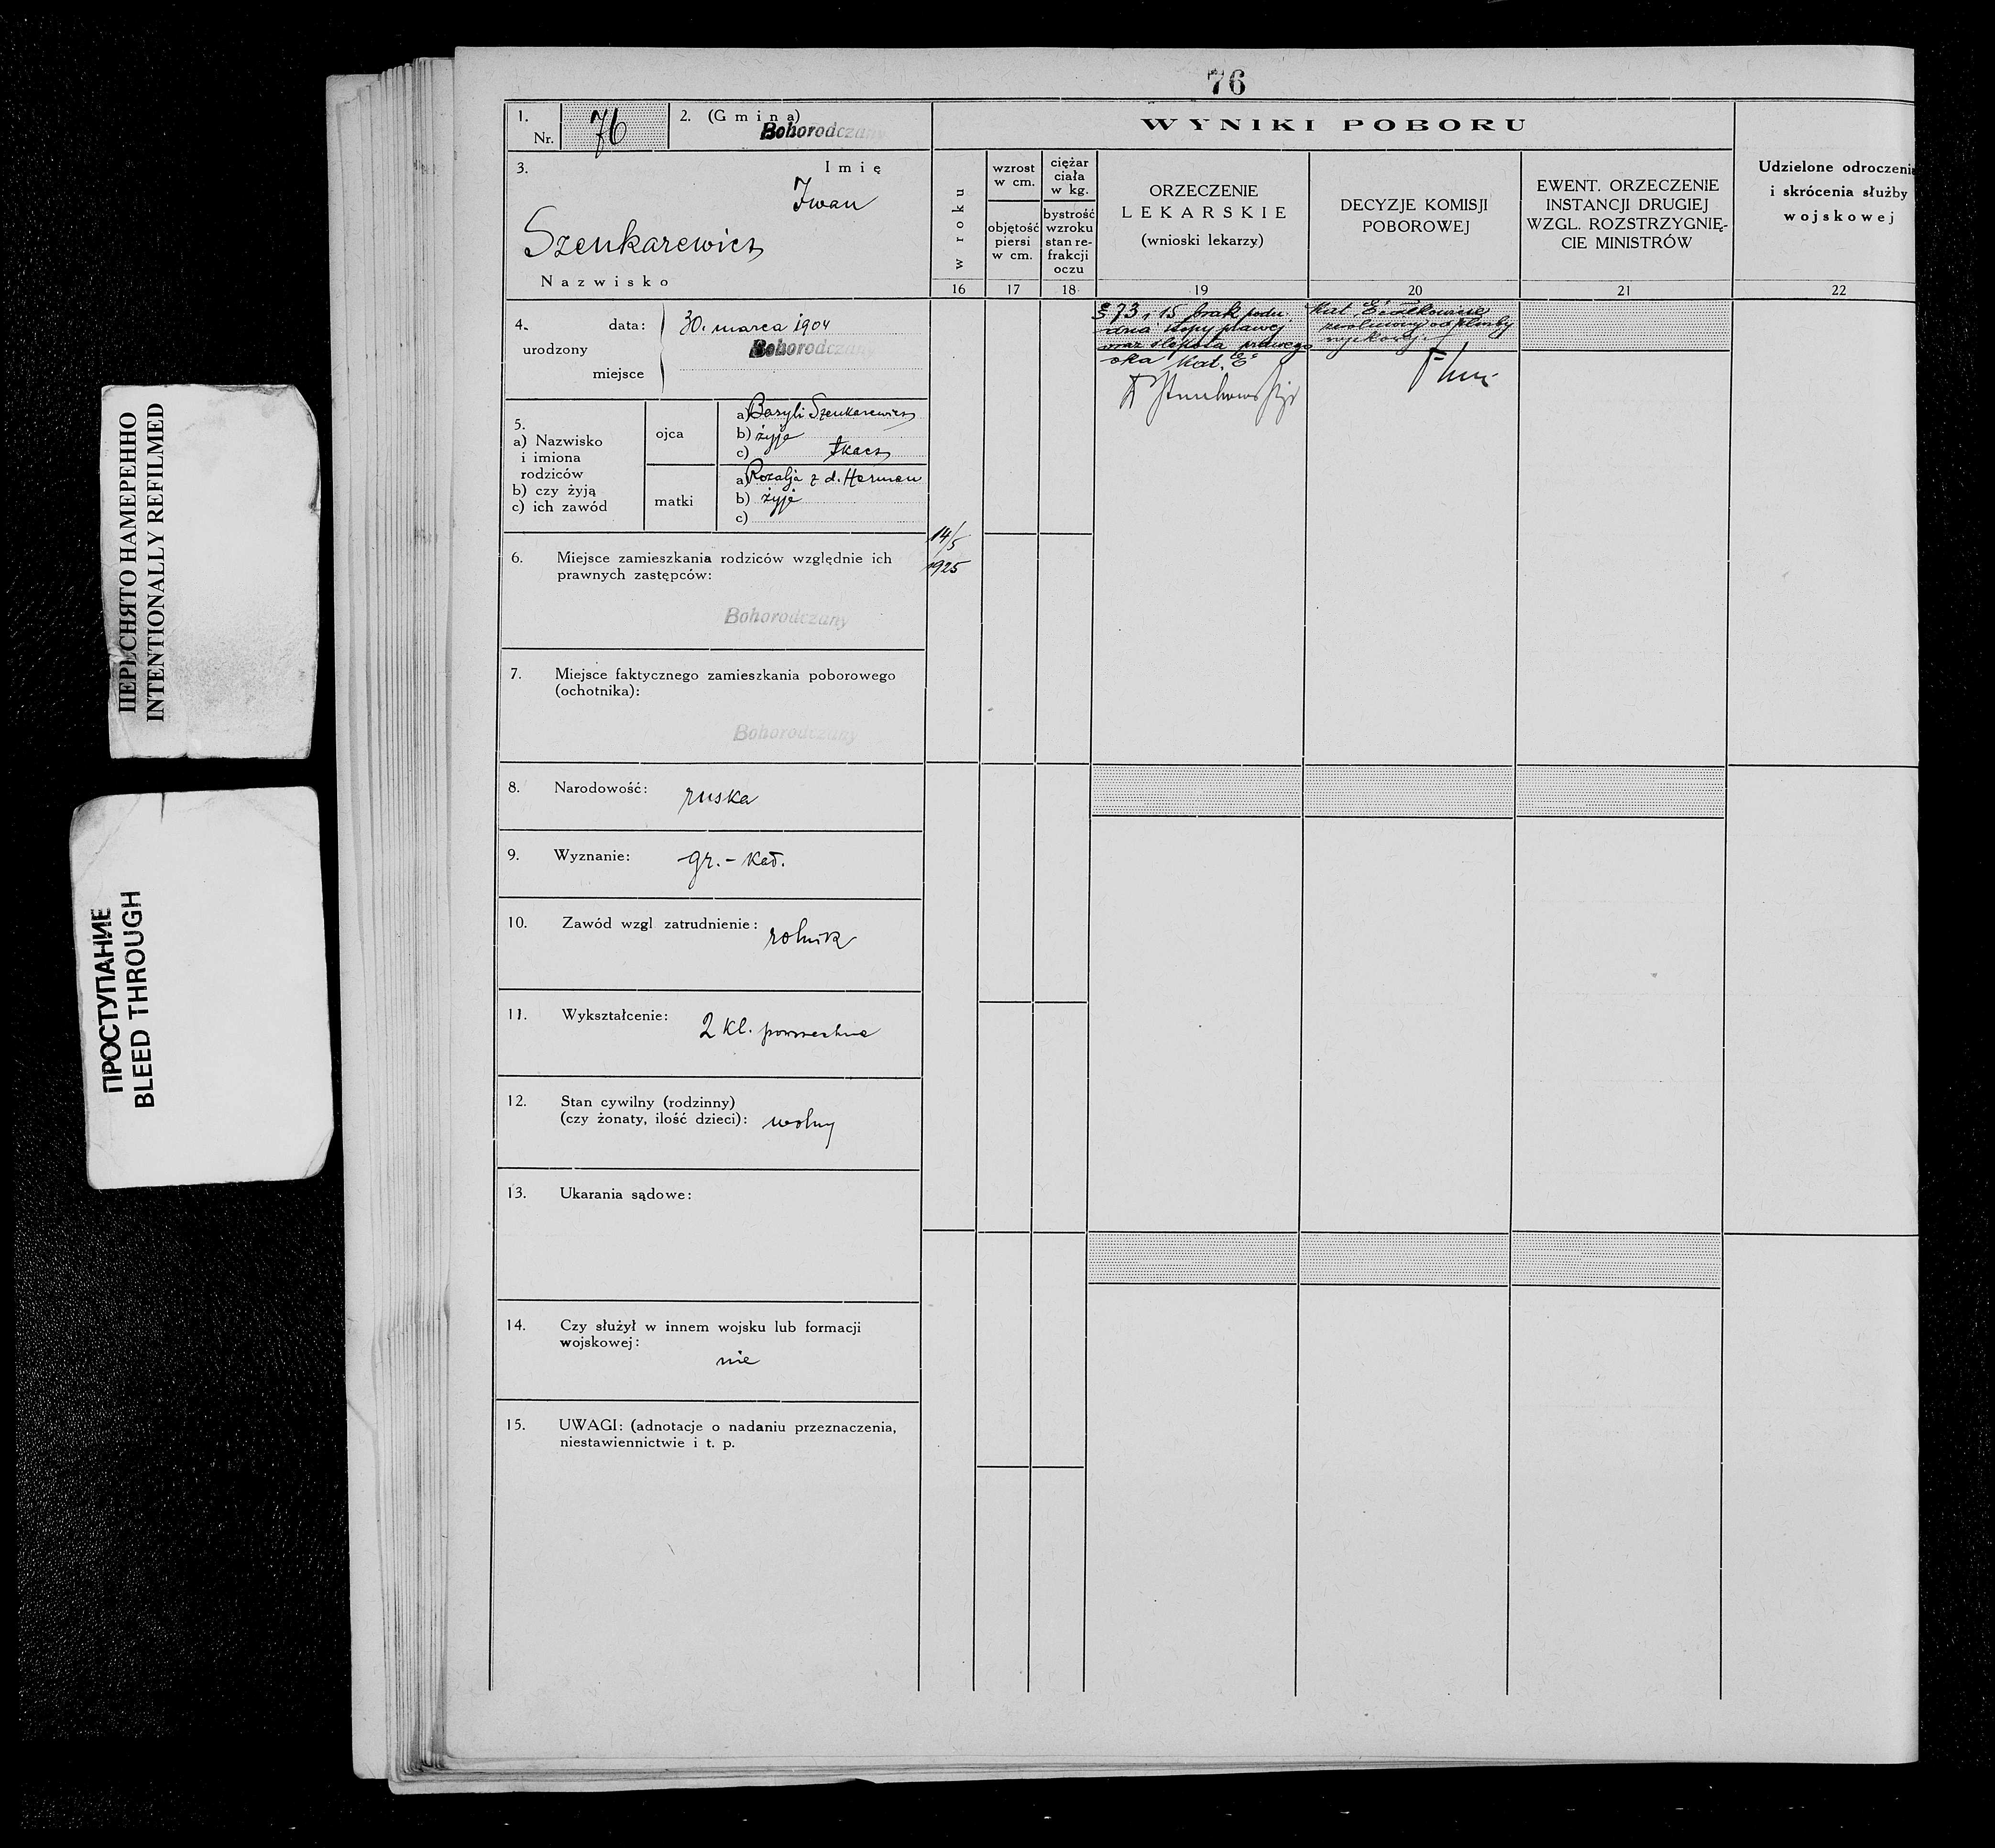 76
1.
Nr. 76
2. (Gmina)
Bohorodczany
3.
Imię
Iwan
Szenkarewicz
Nazwisko
4. data: 30. marca 1904
urodzony
Bohorodczany
miejsce
5.
a) Nazwisko
i imiona
rodziców
b) czy żyją
c) ich zawód
ojca
a) Bazyli Szenkarewicz
b) żyje
c) tkacz
matki
a) Rozalja z d. Herman
b) żyje
c)
6. Miejsce zamieszkania rodziców względnie ich
prawnych zastępców:
Bohorodczany
7. Miejsce faktycznego zamieszkania poborowego
(ochotnika):
Bohorodczany
8. Narodowość: ruska
9. Wyznanie: gr.-kat.
10. Zawód wzgl zatrudnienie: rolnik
11. Wykształcenie: 2 kl. powszechne
12. Stan cywilny (rodzinny)
(czy żonaty, ilość dzieci): wolny
13. Ukarania sądowe:
14. Czy służył w innem wojsku lub formacji
wojskowej:
nie
15. UWAGI: (adnotacje o nadaniu przeznaczenia,
niestawiennictwie i t. p.
WYNIKI POBORU
w roku
16
wzrost
w cm.
objętość
piersi
w cm.
17
ciężar
ciała
w kg.
bystrość
wzroku
stan re-
frakcji
oczu
18
ORZECZENIE
LEKARSKIE
(wnioski lekarzy)
19
DECYZJE KOMISJI
POBOROWEJ
20
EWENT. ORZECZENIE
INSTANCJI DRUGIEJ
WZGL. ROZSTRZYGNIĘ-
CIE MINISTRÓW
21
Udzielone odroczenia
i skrócenia służby
wojskowej
22
14/5
1925
§ 73, 15 brak podu
stopy prawej
oraz ślepota prawego
oka kat. "E"
Kat. "E" całkowicie
zwolniony od służby
wojskowej
ПЕРЕСНЯТО НАМЕРЕННО
INTENTIONALLY REFILMED
ПРОСТУПАНИЕ
BLEED THROUGH